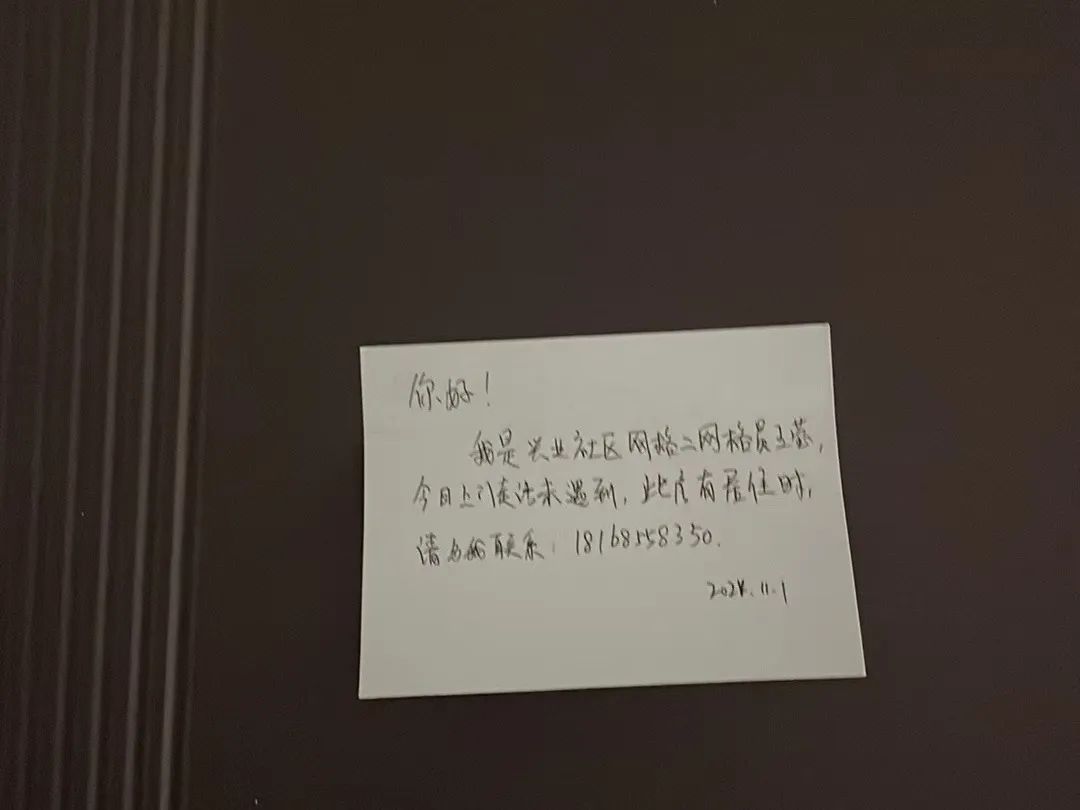 你好！
我是兴业社区网格二网格员王蕊，
今日上门走访未遇到，此户有居住时，
请与我联系：18168558350.
2024.11.1